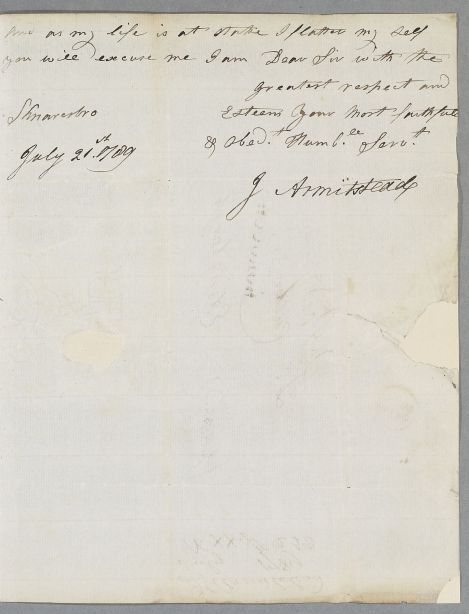 And as my life is at stake I flatter my self
you will excuse me I am Dear Sir with the
greatest respect and
Esteem Your Most faithfull
& obed.t Humb.le Serv.t
Knaresbro
July 21.st 1789
J Armitstead